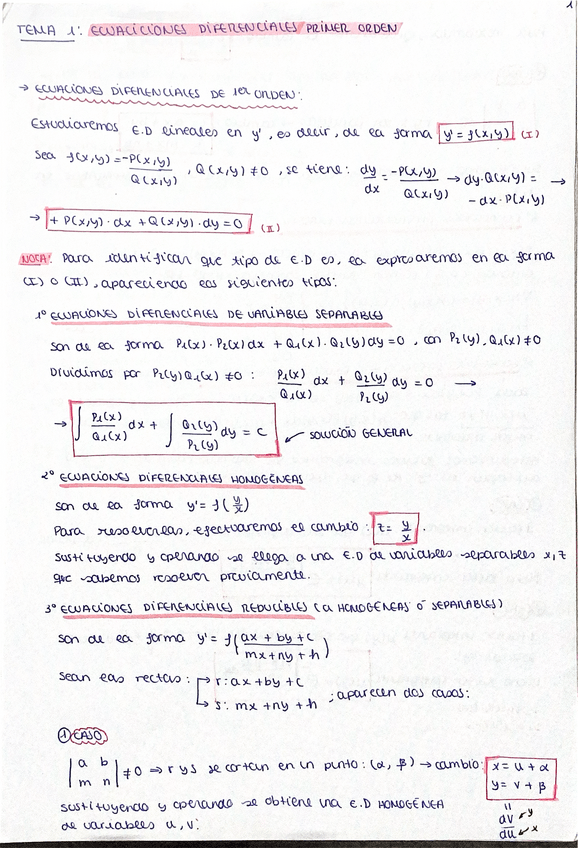 1
TEMA 1: ECUACICIONES DIFERENCIALES PRIMER ORDEN
→ ECUACIONES DIFERENCIALES DE 1er ORDEN:
Estudiaremos E.D lineales en y', es decir, de la forma y' = f(x,y) (I)
Sea f(x,y) = -P(x,y)/Q(x,y), Q(x,y) ≠ 0, se tiene: dy/dx = -P(x,y)/Q(x,y) → dy·Q(x,y) = - dx·P(x,y) →
→ + P(x,y)·dx + Q(x,y)·dy = 0 (II)
NOTA: Para identificar que tipo de E.D es, la expresaremos en la forma
(I) o (II), apareciendo los siguientes tipos:
1º ECUACIONES DIFERENCIALES DE VARIABLES SEPARABLES
son de la forma P1(x)·P2(x)dx + Q1(x)·Q2(y)dy = 0, con P2(y), Q1(x) ≠ 0
Dividimos por P2(y)Q1(x) ≠ 0: P1(x)/Q1(x) dx + Q2(y)/P2(y) dy = 0 →
→ ∫ P1(x)/Q1(x) dx + ∫ Q2(y)/P2(y) dy = C ↙ SOLUCIÓN GENERAL
2º ECUACIONES DIFERENCIALES HOMOGÉNEAS
son de la forma y' = f(y/x)
Para resolverlas, efectuaremos el cambio: z = y/x.
sustituyendo y operando se llega a una E.D de variables separables x,z
que sabemos resolver previamente.
3º ECUACIONES DIFERENCIALES REDUCIBLES (a HOMOGÉNEAS o SEPARABLES)
son de la forma y' = f(ax + by + c / mx + ny + h)
Sean las rectas: r: ax + by + c
s: mx + ny + h ; aparecen dos casos:
1 CASO
|a b|
|m n| ≠ 0 ⇒ r y s se cortan en un punto: (α, β) → cambio: x = u + α
y = v + β
sustituyendo y operando se obtiene una E.D HOMOGÉNEA
de variables u, v:
"
dv ↙ y
du ↙ x